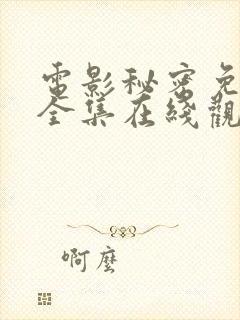 電影秘密免
全集在线觀
啊麼